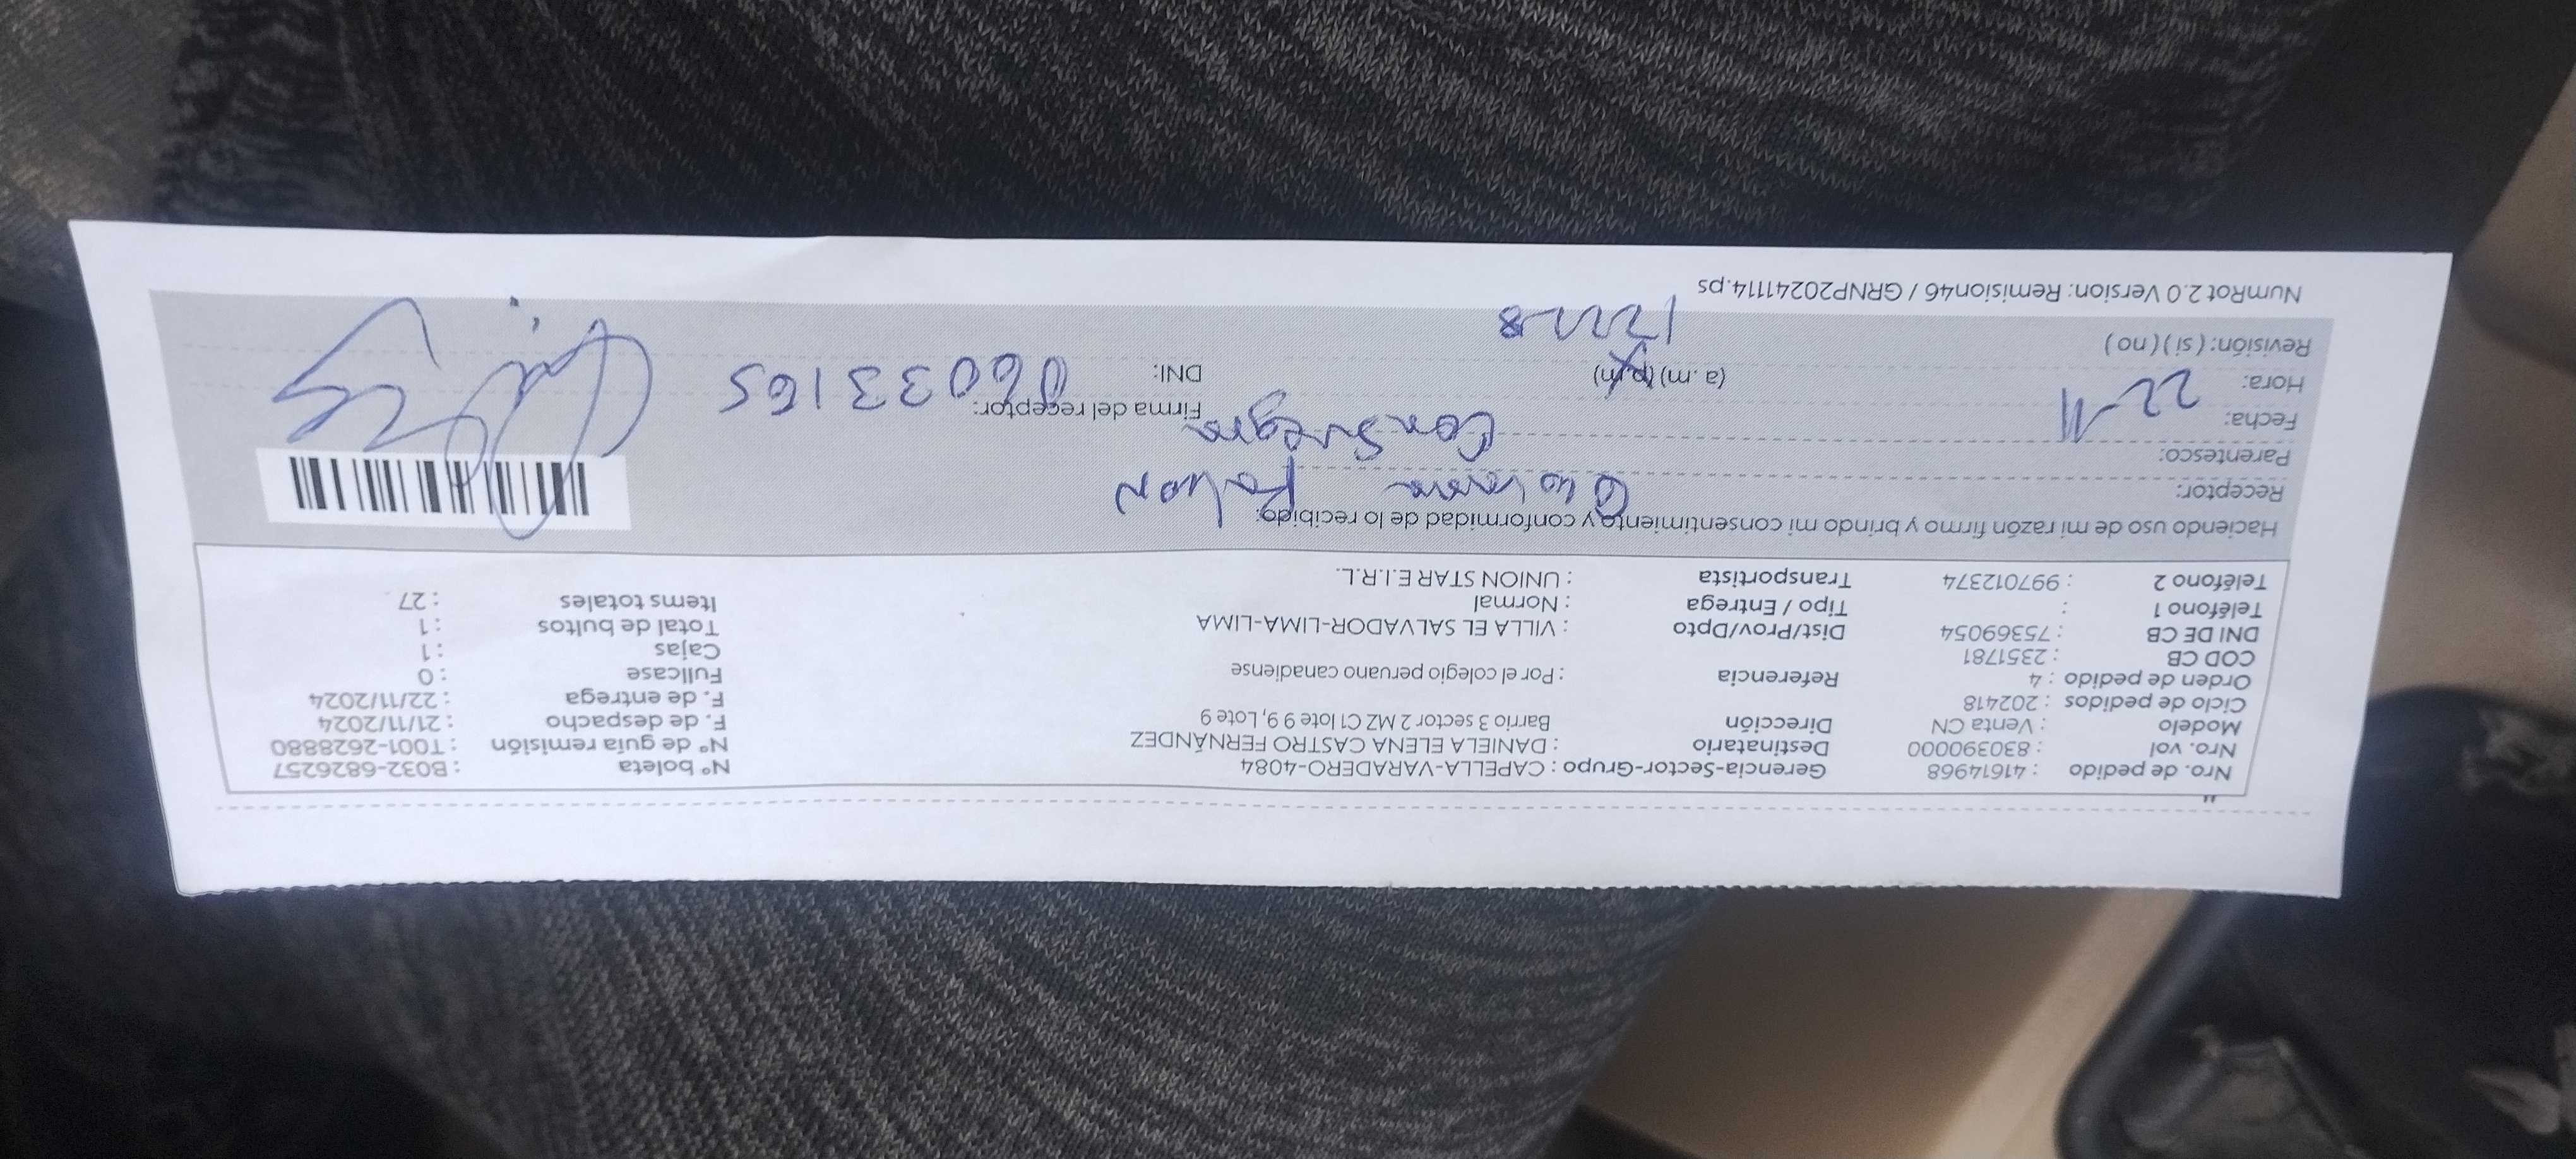 Nro. de pedido : 41614968 Gerencia-Sector-Grupo : CAPELLA-VARADERO-4084 Nº boleta : B032-6826257
Nro. vol : 830390000 Destinatario : DANIELA ELENA CASTRO FERNÁNDEZ Nº de guía remisión : T001-2628880
Modelo : Venta CN Dirección Barrio 3 sector 2 MZ C1 lote 9 9, Lote 9 F. de despacho : 21/11/2024
Ciclo de pedidos : 202418 F. de entrega : 22/11/2024
Orden de pedido : 4 Referencia : Por el colegio peruano canadiense Fullcase : 0
COD CB : 2351781 Cajas : 1
DNI DE CB : 75369054 Dist/Prov/Dpto : VILLA EL SALVADOR-LIMA-LIMA Total de bultos : 1
Teléfono 1 : Tipo / Entrega : Normal Items totales : 27
Teléfono 2 : 997012374 Transportista : UNION STAR E.I.R.L.
Haciendo uso de mi razón firmo y brindo mi consentimiento y conformidad de lo recibido:
Receptor:
Parentesco:
Fecha: 22-11 Firma del receptor:
Hora: (a.m) (p.m) DNI: 06033165
Revisión: ( si ) ( no )
NumRot 2.0 Version: Remision46 / GRNP20241114.ps